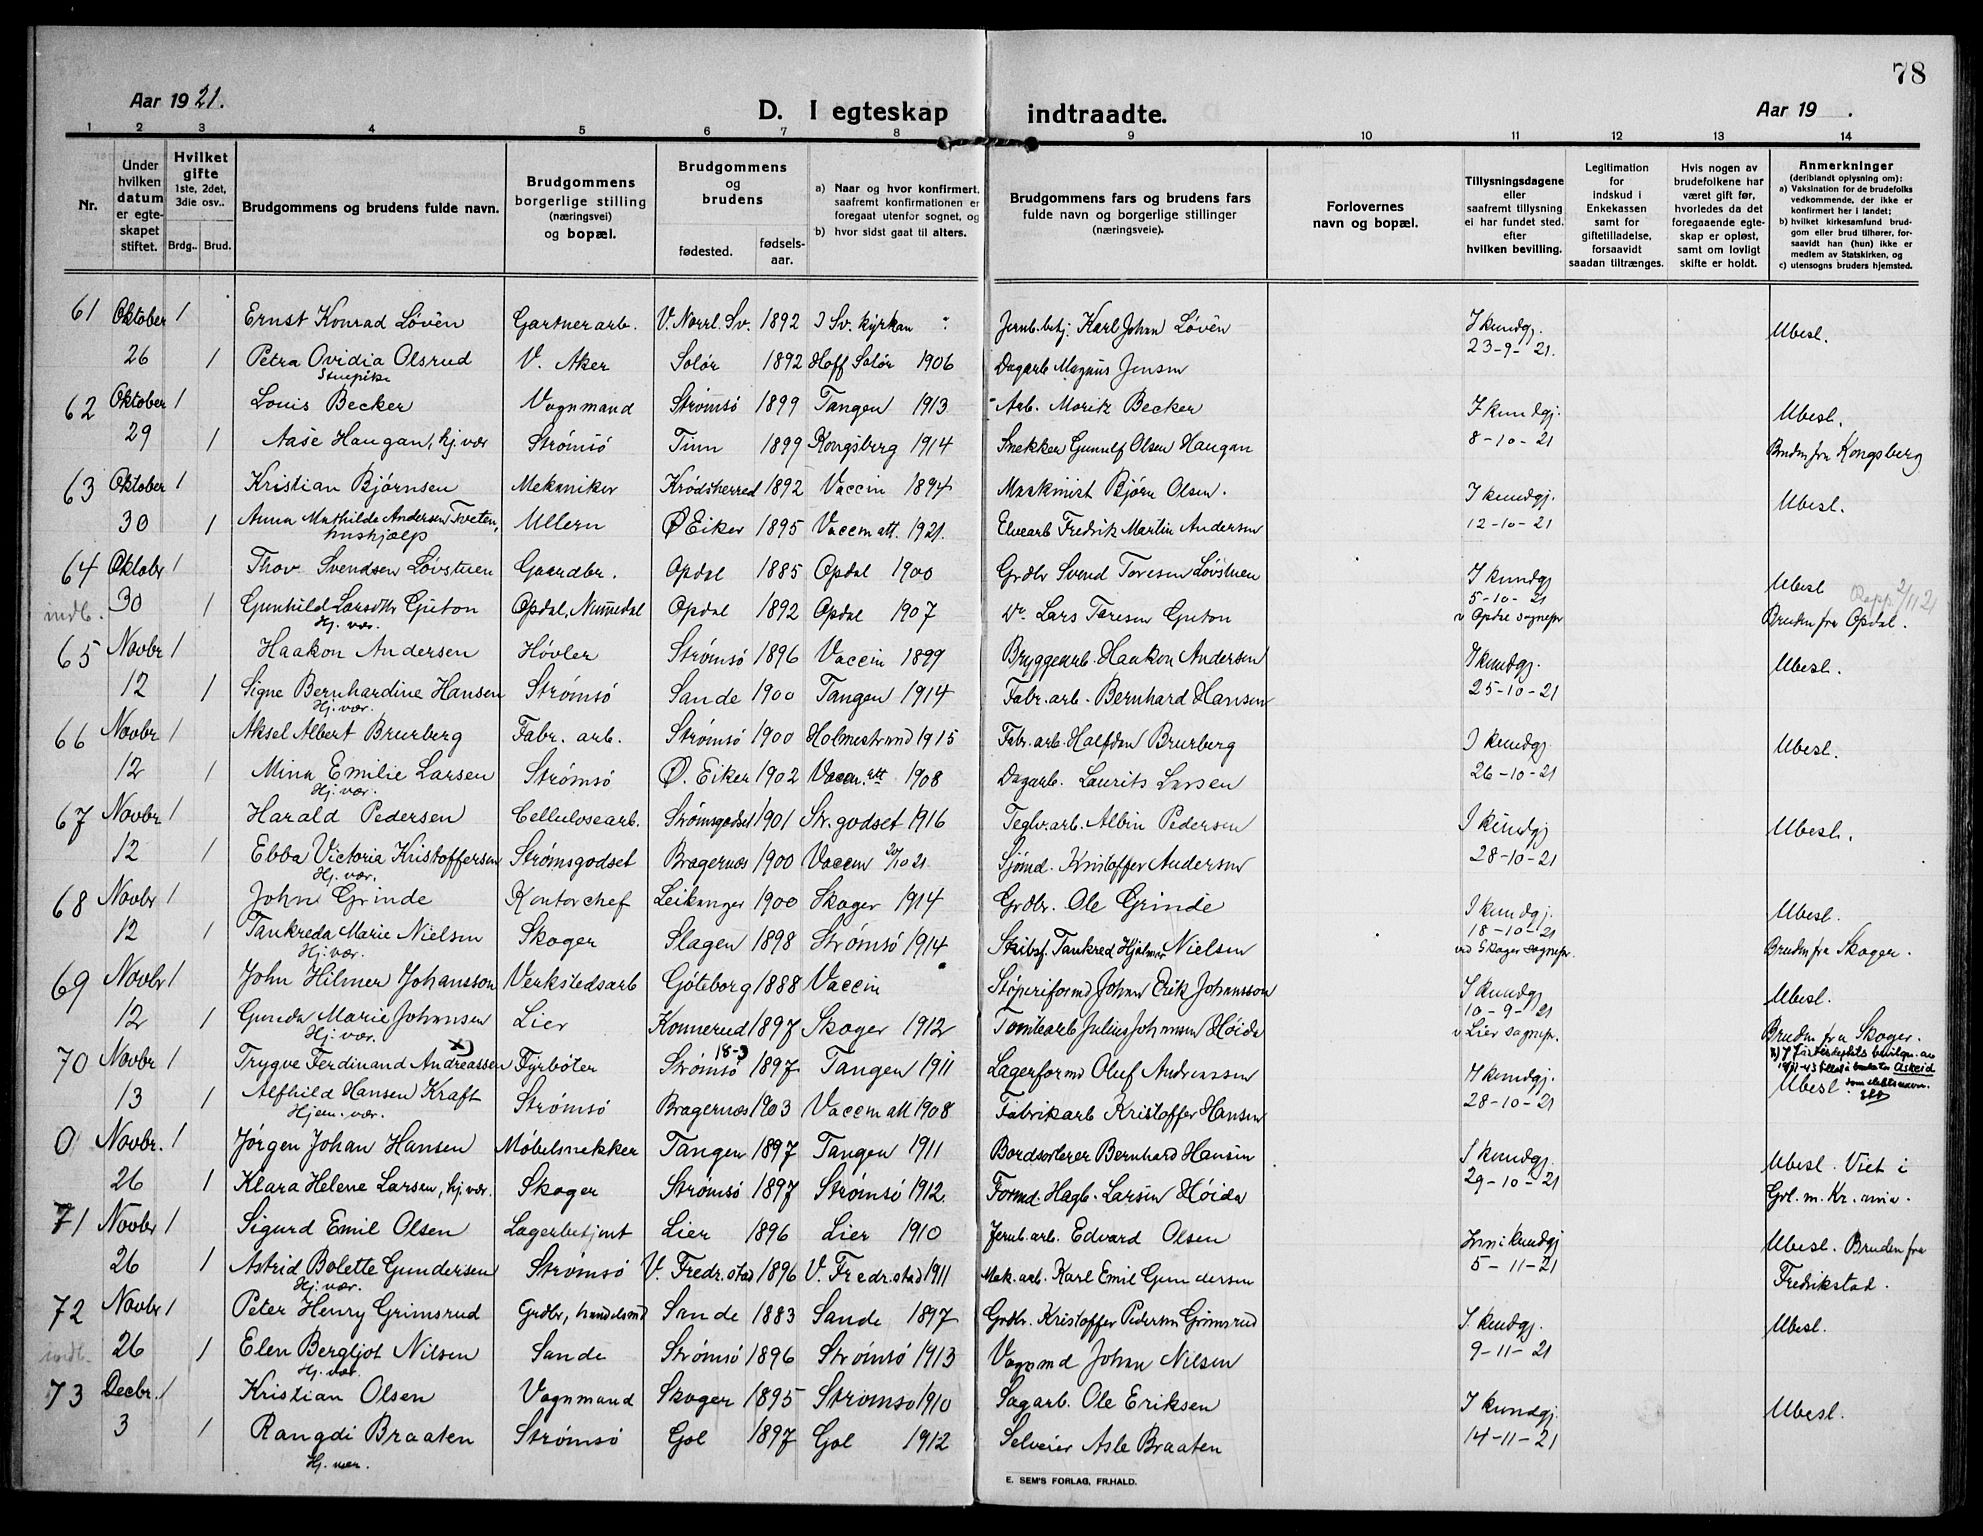 78
Aar 1921.
D. I egteskap indtraadte.
Aar 19 .
1 2 3 4 5 6 7 8 9 10 11 12 13 14
Nr.
Under hvilken datum er egteskapet stiftet.
Hvilket gifte 1ste, 2det, 3die osv..
Brdg.. Brud.
Brudgommens og brudens fulde navn.
Brudgommens borgerlige stilling (næringsvei) og bopæl.
Brudgommens og brudens
fødested. fødselsaar.
a) Naar og hvor konfirmert, saafremt konfirmationen er foregaat utenfor sognet, og
b) hvor sidst gaat til alters.
Brudgommens fars og brudens fars fulde navn og borgerlige stillinger (næringsveie).
Forlovernes navn og bopæl.
Tillysningsdagene eller saafremt tillysning ei har fundet sted. efter hvilken bevilling.
Legitimation for indskud i Enkekassen samt for giftetilladelse, forsaavidt saadan tiltrænges.
Hvis nogen av brudefolkene har været gift før, hvorledes da det foregaaende egteskap er opløst, samt om lovligt skifte er holdt.
Anmerkninger (deriblandt oplysning om):
a) Vaksination for de brudefolks vedkommende, der ikke er konfirmert her i landet;
b) hvilket kirkesamfund brudgom eller brud tilhører, forsaavidt han (hun) ikke er medlem av Statskirken, og
c) utensogns bruders hjemsted.
61 Oktober 1 Ernst Konrad Løvén Gartnerarb. V. Norrl. Sv. 1892 I Sv. kyrkan Jernb.betj. Karl Johan Løvén I kundgj. 23-9-21. Ubesl.
26 1 Petra Ovidia Olsrud V. Aker Solør 1892 Hoff Solør 1906 Dagarb Magnus Jensen
Stuepike
62 Oktober 1 Louis Becker Vognmand Strømsö 1899 Tangen 1913 Arb. Moritz Becker I kundgj. 8-10-21 Ubesl.
29 1 Aase Haugan, hj. vær Strømsö Tinn 1899 Kongsberg 1914 Snekker Gunulf Olsen Haugan Bruden fra Kongsberg
63 Oktober 1 Kristian Bjørnsen Mekaniker Krødsherred 1892 Vaccin 1894 Maskinist Bjørn Olsen. I kundgj. 12-10-21 Ubesl.
30 1 Anna Mathilde Andersen Tveten, Ullern Ø Eiker 1895 Vaccin att. 1921. Elvearb Fredrik Martin Andersen
hushjælp
64 Oktobr 1 Thov Svendsen Løvstuen Gaardbr. Opdal 1885 Opdal 1900 Grdbr Svend Toresen Løvstuen I kundgj 5-10-21 v Opdal sognepr Ubesl
indb. 30 1 Gunhild Larsdtr Guton Opdal, Numedal Opdal 1892 Opdal 1907 Lars Toresen Guton Bruden fra Opdal. 2/11 21
Hj. vær.
65 Novbr 1 Haakon Andersen Høvler Strømsö 1896 Vaccin 1899 Bryggearb. Haakon Andersen I kundgj. 25-10-21 Ubesl.
12 1 Signe Bernhardine Hansen Strømsö Sande 1900 Tangen 1914 Fabr. arb. Bernhard Hansen
Hj. vær.
66 Novbr 1 Aksel Albert Brurberg Fabr. arb. Strømsö 1900 Holmestrand 1915 Fabr. arb. Halfdan Brurberg I kundgj. 26-10-21 Ubesl.
12 1 Mina Emilie Larsen Strømsö Ø. Eiker 1902 Vaccin. att 1908 Dagarb. Laurits Larsen
Hj. vær.
67 Novbr 1 Harald Pedersen Cellulosearb. Strømsgodset 1901 Str. godset 1916 Teglv.arb. Albin Pedersen I kundgj 28-10-21 Ubesl.
12 1 Ebba Victoria Kristoffersen Strømsgodset Bragernæs 1900 Vaccin 20/10 21. Sjømd. Kristoffer Andersen
Hj. vær.
68 Novbr 1 John Grinde Kontorchef Leikanger 1900 Skoger 1914 Grdbr. Ole Grinde I kundgj. 18-10-21 ved Skoger sognepr. Ubesl.
12 1 Tankreda Marie Nielsen Skoger Slagen 1898 Strømsö 1914 Skibsf. Tankred Hjalmar Nielsen Bruden fra Skoger.
Hj. vær.
69 Novbr 1 John Hilmer Johansson Verkstedsarb Göteborg 1888 Vaccin Støperiformd Johan Erik Johansson I kundgj 10-9-21 v. Lier sognepr. Ubesl.
12 1 Gunda Marie Johansen Lier Konnerud 1897 Skoger 1912 Tomtearb Julius Johansen Høida Bruden fra Skoger.
Hj. vær.
70 Novbr 1 Trygve Ferdinand Andreassen x) Fyrbøter Strømsö 18-3 1897 Tangen 1911 Lagerformd Oluf Andreassen I kundgj. 28-10-21 Ubesl.
x) J. Justisdeptets bevilgn. av 19/11-43 tillates bruken Askeid som slektsnavn.
13 1 Alfhild Hansen Kraft Strømsö Bragernæs 1903 Vaccin att 1908 Fabrikarb Kristoffer Hansen
Hjem. vær.
0 Novbr. 1 Jørgen Johan Hansen Møbelsnekker Tangen 1897 Tangen 1911 Bordsorterer Bernhard Hansen I kundgj. 29-10-21 Ubesl. Viet i
26 1 Klara Helene Larsen, hj. vær. Skoger Strømsö 1897 Strømsö 1912. Formd. Hagb. Larsen Høida Grl. m. Kr. ania.
71 Novbr 1 Sigurd Emil Olsen Lagerbetjent Lier 1896 Lier 1910 Jernb. arb. Edvard Olsen Inni kundgj 5-11-21 Ubesl. Bruden fra
26 1 Astrid Bolette Gundersen Strømsö V. Fredr.stad 1896 V. Fredr.stad 1911 Mek. arb. Karl Emil Gundersen Fredrikstad.
Hj. vær.
72 Novbr 1 Peter Henry Grimsrud Grdbr, handelsmd Sande 1883 Sande 1897 Grdbr. Kristoffer Pedersen Grimsrud I. kundgj. 9-11-21 Ubesl.
indb. 26 1 Elen Bergljot Nilsen Sande Strømsö 1896 Strømsö 1913 Vognmd Johan Nilsen
Hj. vær.
73 Decbr. 1 Kristian Olsen Vognmand Skoger 1895 Strømsö 1910 Sagarb. Ole Eriksen I kundgj. 14-11-21 Ubesl.
3 1 Rangdi Braaten Strømsö Gol 1897 Gol 1912 Selveier Asle Braaten
Hj. vær.
E. SEM'S FORLAG, FR.HALD.